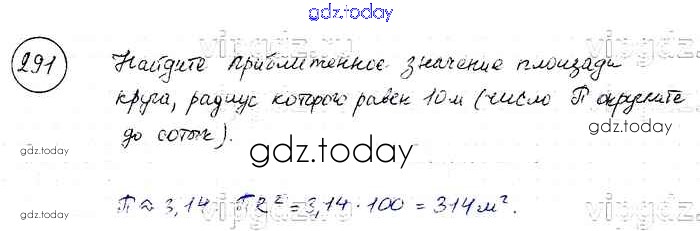 gdz.today
291
Найдите приближенное значение площади
круга, радиус которого равен 10 м (число П округлите
до сотых).
gdz.today
gdz.today
gdz.today
П ≈ 3,14 ПR² = 3,14 · 100 = 314 м².
gdz.today
gdz.today